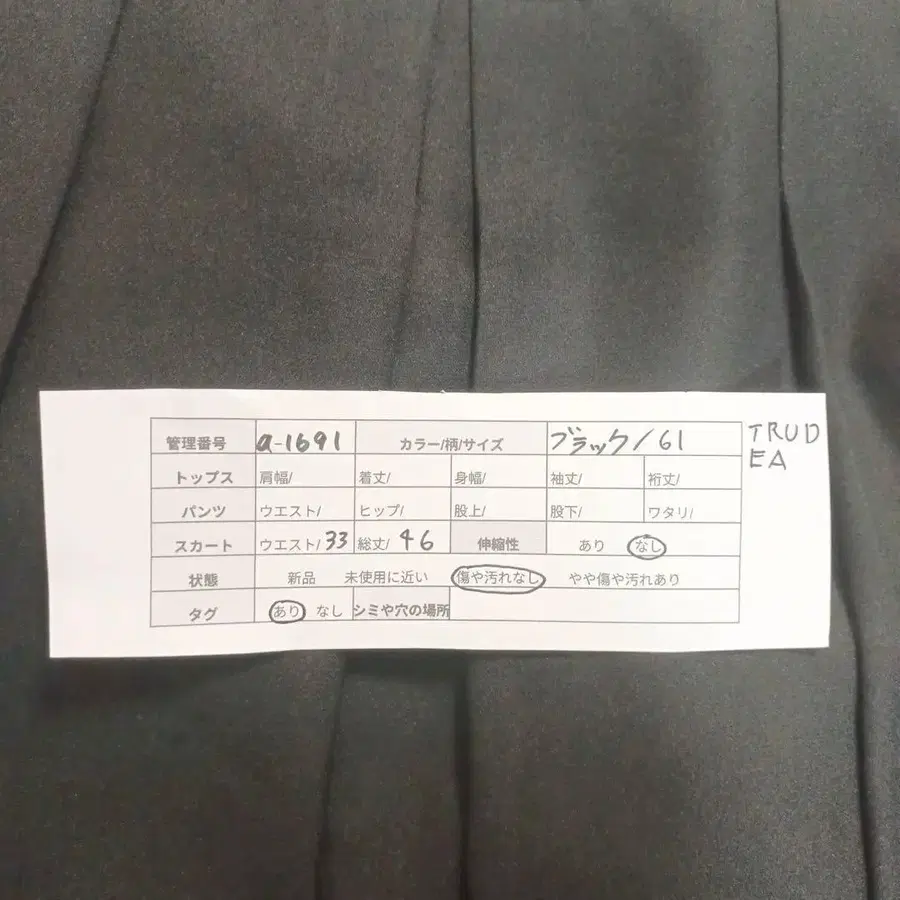 管理番号 a-1691 カラー/柄/サイズ ブラック/61
TRUD
EA
トップス 肩幅/ 着丈/ 身幅/ 袖丈/ 裄丈/
パンツ ウエスト/ ヒップ/ 股上/ 股下/ ワタリ/
スカート ウエスト/33 総丈/46 伸縮性 あり なし
状態 新品 未使用に近い 傷や汚れなし やや傷や汚れあり
タグ あり なし シミや穴の場所